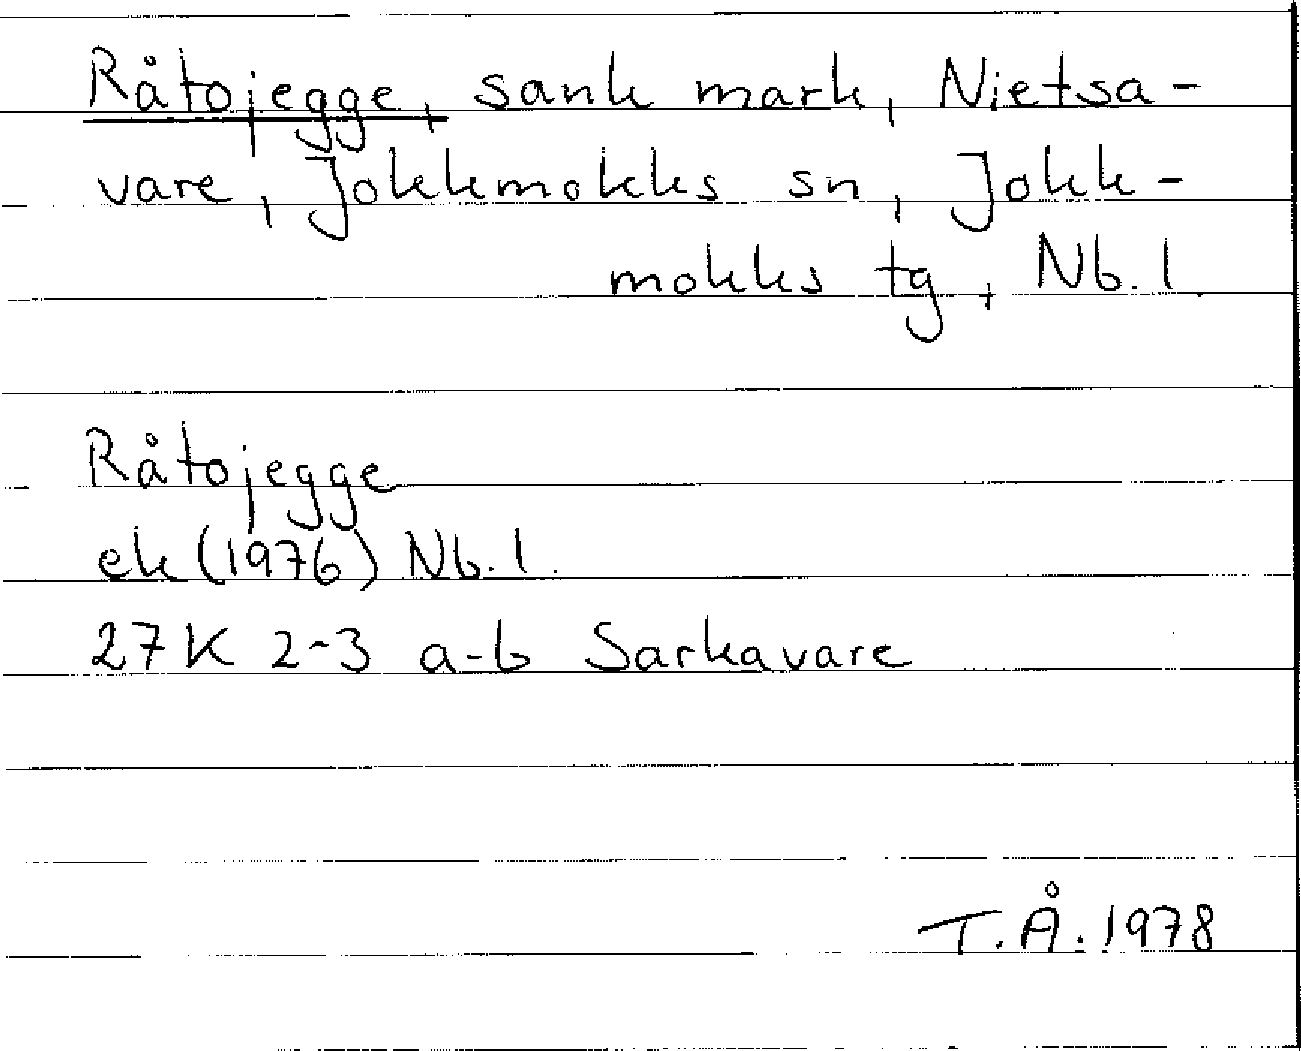 Råtojegge, sank mark, Nietsa-
vare, Jokkmokks sn, Jokk-
mokks tg, Nb. l.
Råtojegge
ek (1976) Nb. l.
27K 2-3 a-b Sarkavare
T.Å. 1978